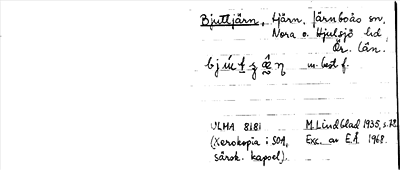 Bjuttjärn, tjärn, Järnboås sn,
Nora o. Hjulsjö hd,
Ör. län.
m. best f.
ULMA 8181 M. Lindblad 1935, s. 22
(Xerokopia i SOA, Exc. av E.Å. 1968.
särsk. kapsel).